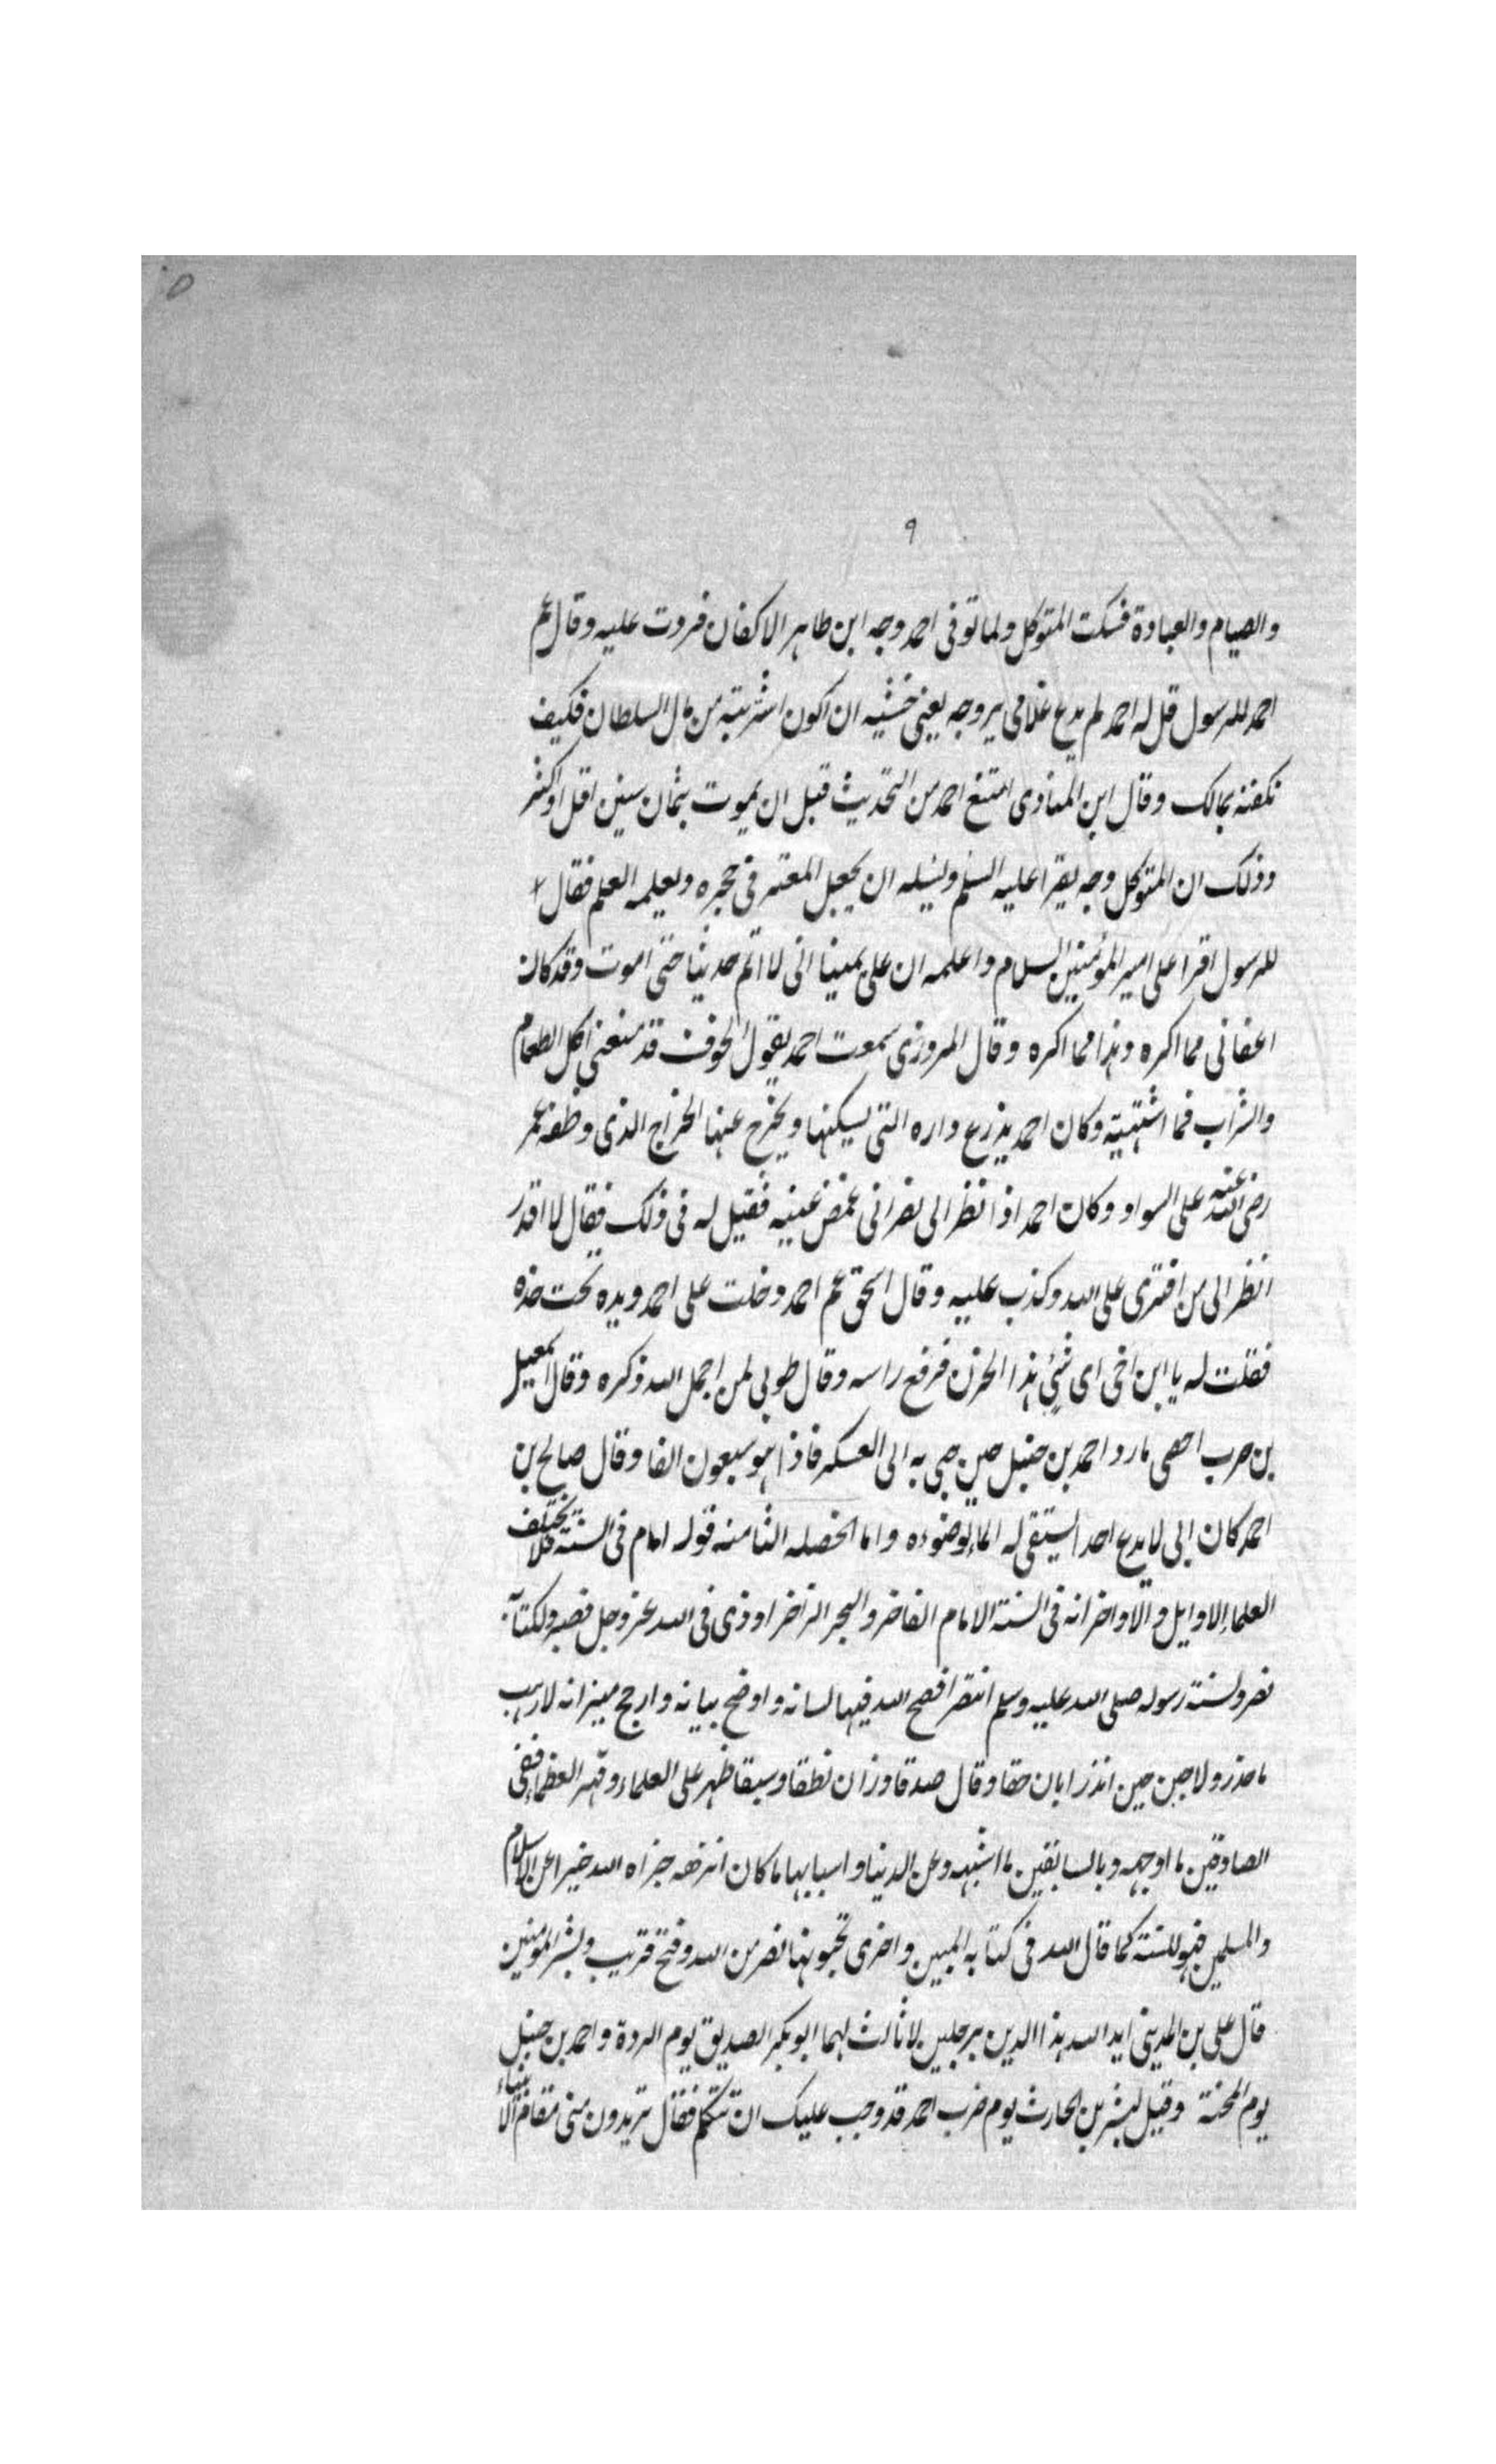 ٩
والصيام والعبادة فسكت المتوكل ولما توفى احمد وجه ابن طاهر الاكفان فردت عليه وقال عم
احمد للرسول قل له احمد لم يدع غلامى يروحه يعنى خشيه ان اكون اشتريته من مال السلطان فكيف
نكفنه بمالك وقال ابن المناوى امتنع احمد من التحديث قبل ان يموت بثمان سنين اقل او اكثر
وذلك ان المتوكل وجه يقرا عليه السلم ويسله ان يجعل المعتز فى حجره ويعلمه العلم فقال
للرسول اقرا على امير المؤمنين السلام واعلمه ان على يمينا انى لا اتم حديثا حتى اموت وقد كان
اعفانى مما اكره وهذا مما اكره وقال المروزى سمعت احمد يقول الخوف قد منعنى اكل الطعام
والشراب فما اشتهيته وكان احمد يذرع داره التى يسكنها ويخرج عنها الخراج الذى وظفه عمر
رضى الله عنه على السواد وكان احمد اذا نظر الى نصرانى غمض عينيه فقيل له فى ذلك فقال لا اقدر
انظر الى من افترى على الله وكذب عليه وقال اسحق عم احمد دخلت على احمد ويده تحت خده
فقلت له يا ابن اخى اى شئ هذا الحزن فرفع راسه وقال طوبى لمن اخمل الله ذكره وقال اسمعيل
بن حرب احصى مارد احمد بن حنبل حين جى به الى العسكر فاذا هو سبعون الفا وقال صالح بن
احمد كان ابى لا يدع احدا يستقى له الماء لوضوءه واما الخصله الثامنه قوله امام فى السنة فلا يختلف
العلماء الاوايل والاواخر انه فى السنة الامام الفاخر والبحر الزاخر اوذى فى الله عز وجل فصبر ولكتابه
نصر ولسنة رسوله صلى الله عليه وسلم انتصر افصح الله فيها لسانه واوضح بيانه وارجح ميزانه لا رهب
ما حذر ولا جبن حين انذر ابان حقا وقال صدقا وزان نطقا وسبقا ظهر على العلماء وقهر العظماء ففى
الصادقين ما اوجهه وبالسابقين ما اشبهه وعن الدنيا واسبابها ما كان انزهه جزاه الله خيرا عن الاسلام
والمسلمين فهو للسنة كما قال الله فى كتابه المبين واخرى تحبونها نصر من الله وفتح قريب وبشر المؤمنين
قال على بن المدينى ايد الله هذا الدين برجلين لا ثالث لهما ابو بكر الصديق يوم الردة واحمد بن حنبل
يوم المحنة وقيل لبشر بن الحارث يوم ضرب احمد قد وجب عليك ان تتكلم فقال تريدون منى مقام الانبياء